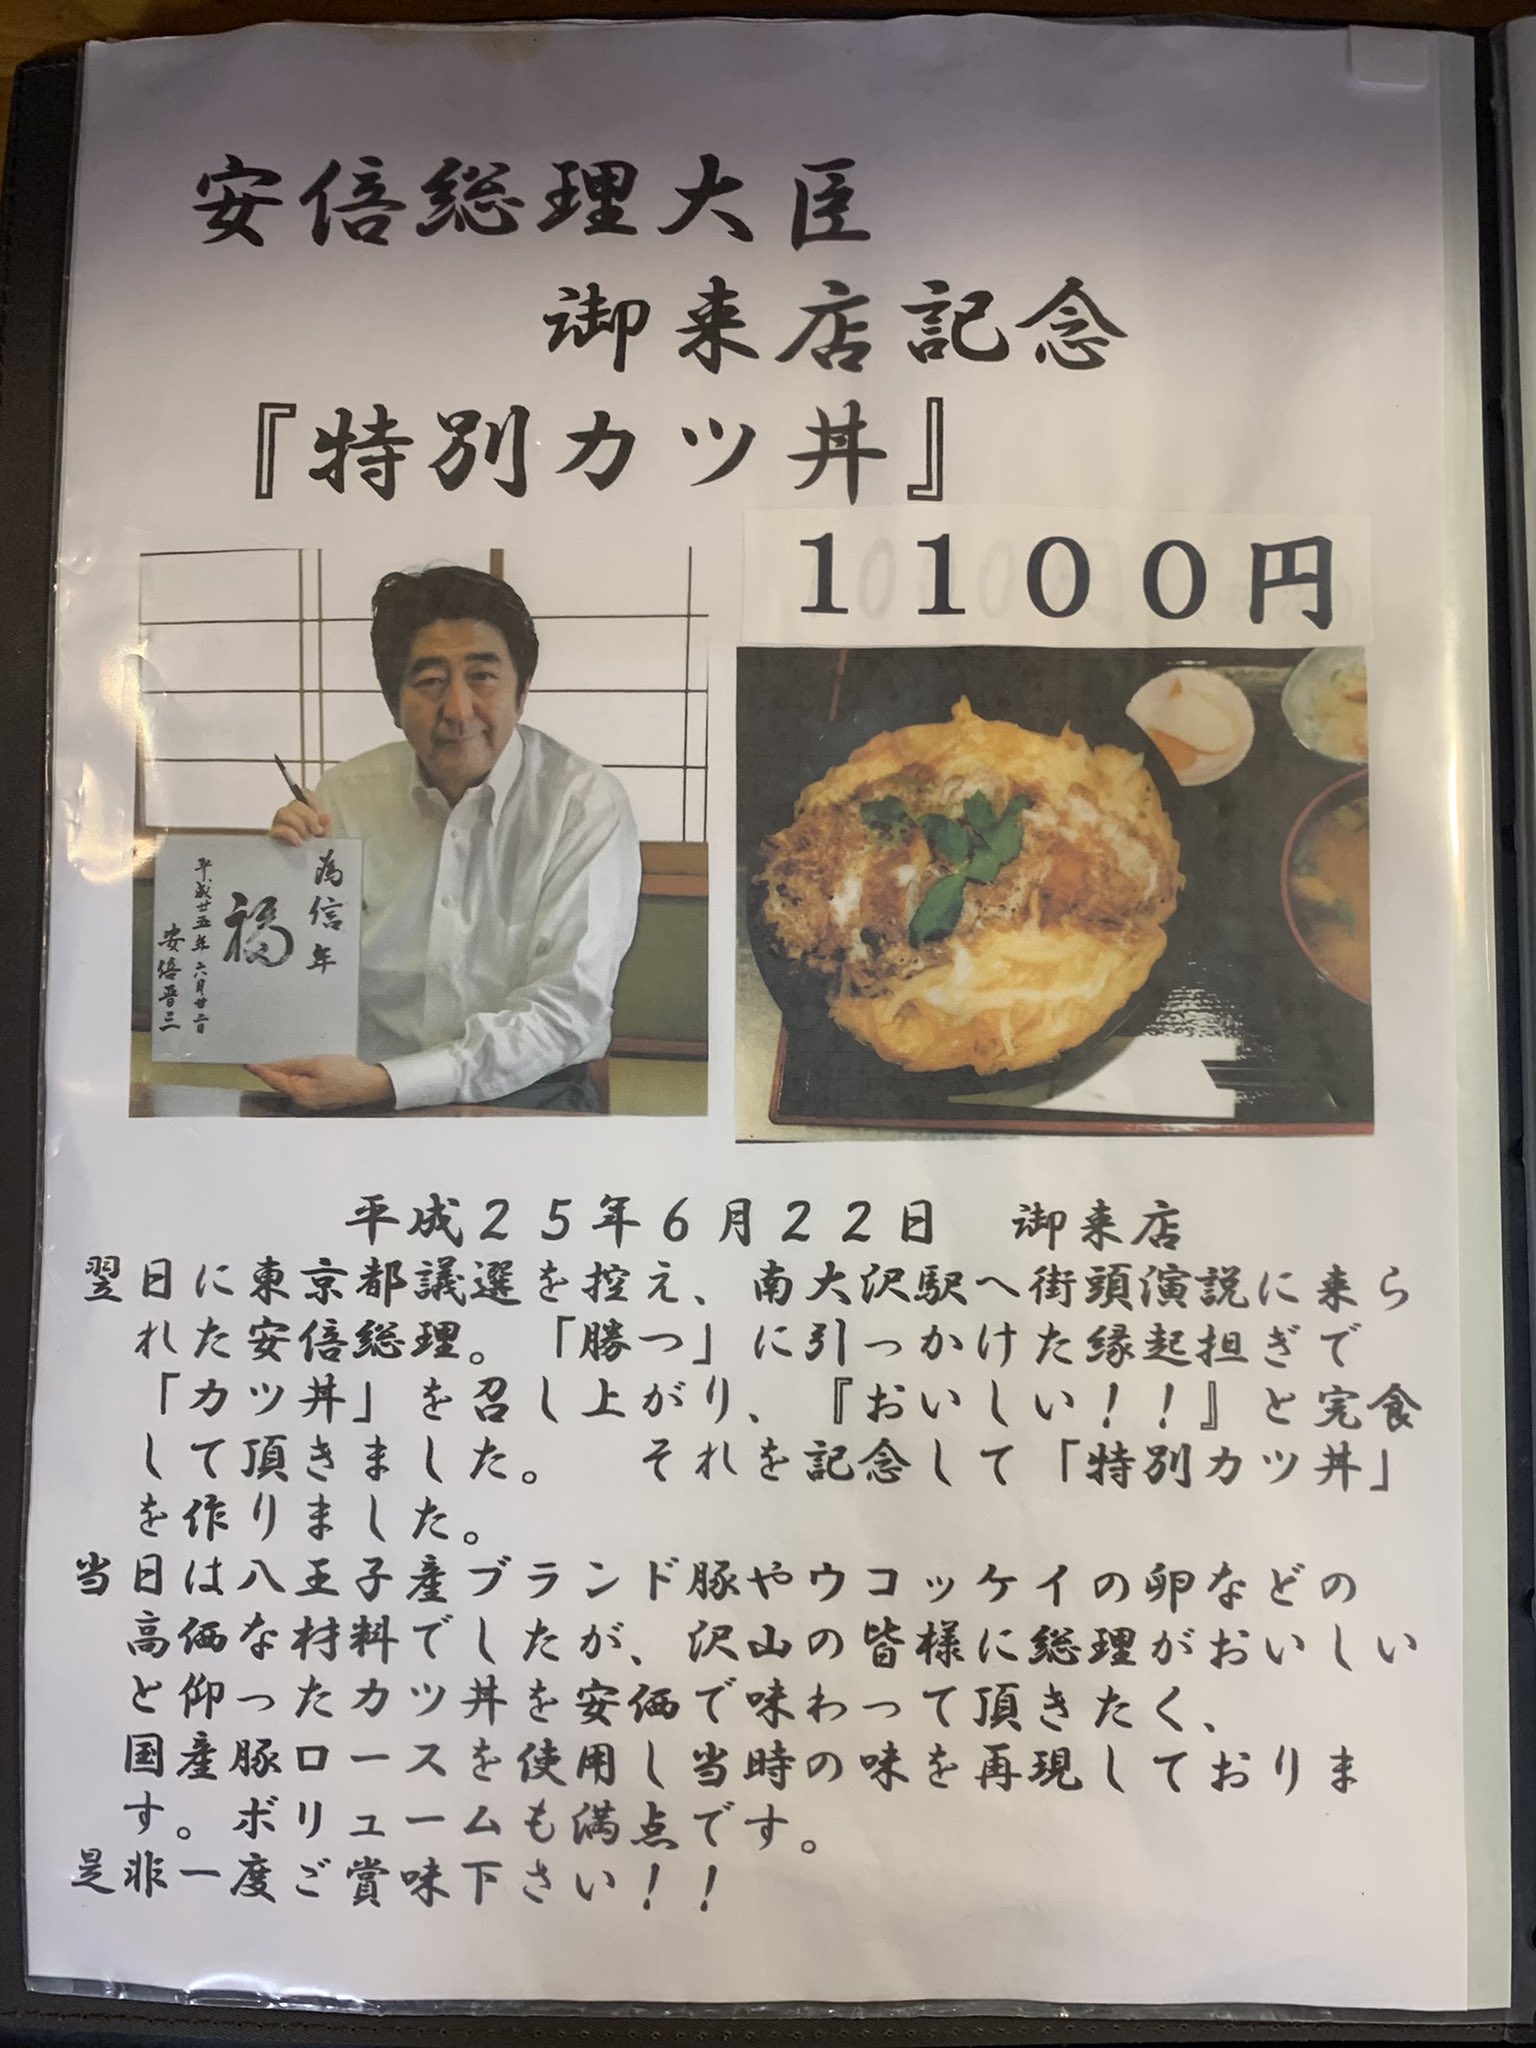 安倍総理大臣
御来店記念
『特別カツ丼』
1100円
為信年
福
平成廿五年六月廿二日
安倍晋三
平成25年6月22日 御来店
翌日に東京都議選を控え、南大沢駅へ街頭演説に来ら
れた安倍総理。「勝つ」に引っかけた縁起担ぎで
「カツ丼」を召し上がり、『おいしい!!』と完食
して頂きました。 それを記念して「特別カツ丼」
を作りました。
当日は八王子産ブランド豚やウコッケイの卵などの
高価な材料でしたが、沢山の皆様に総理がおいしい
と仰ったカツ丼を安価で味わって頂きたく、
国産豚ロースを使用し当時の味を再現しておりま
す。ボリュームも満点です。
是非一度ご賞味下さい!!